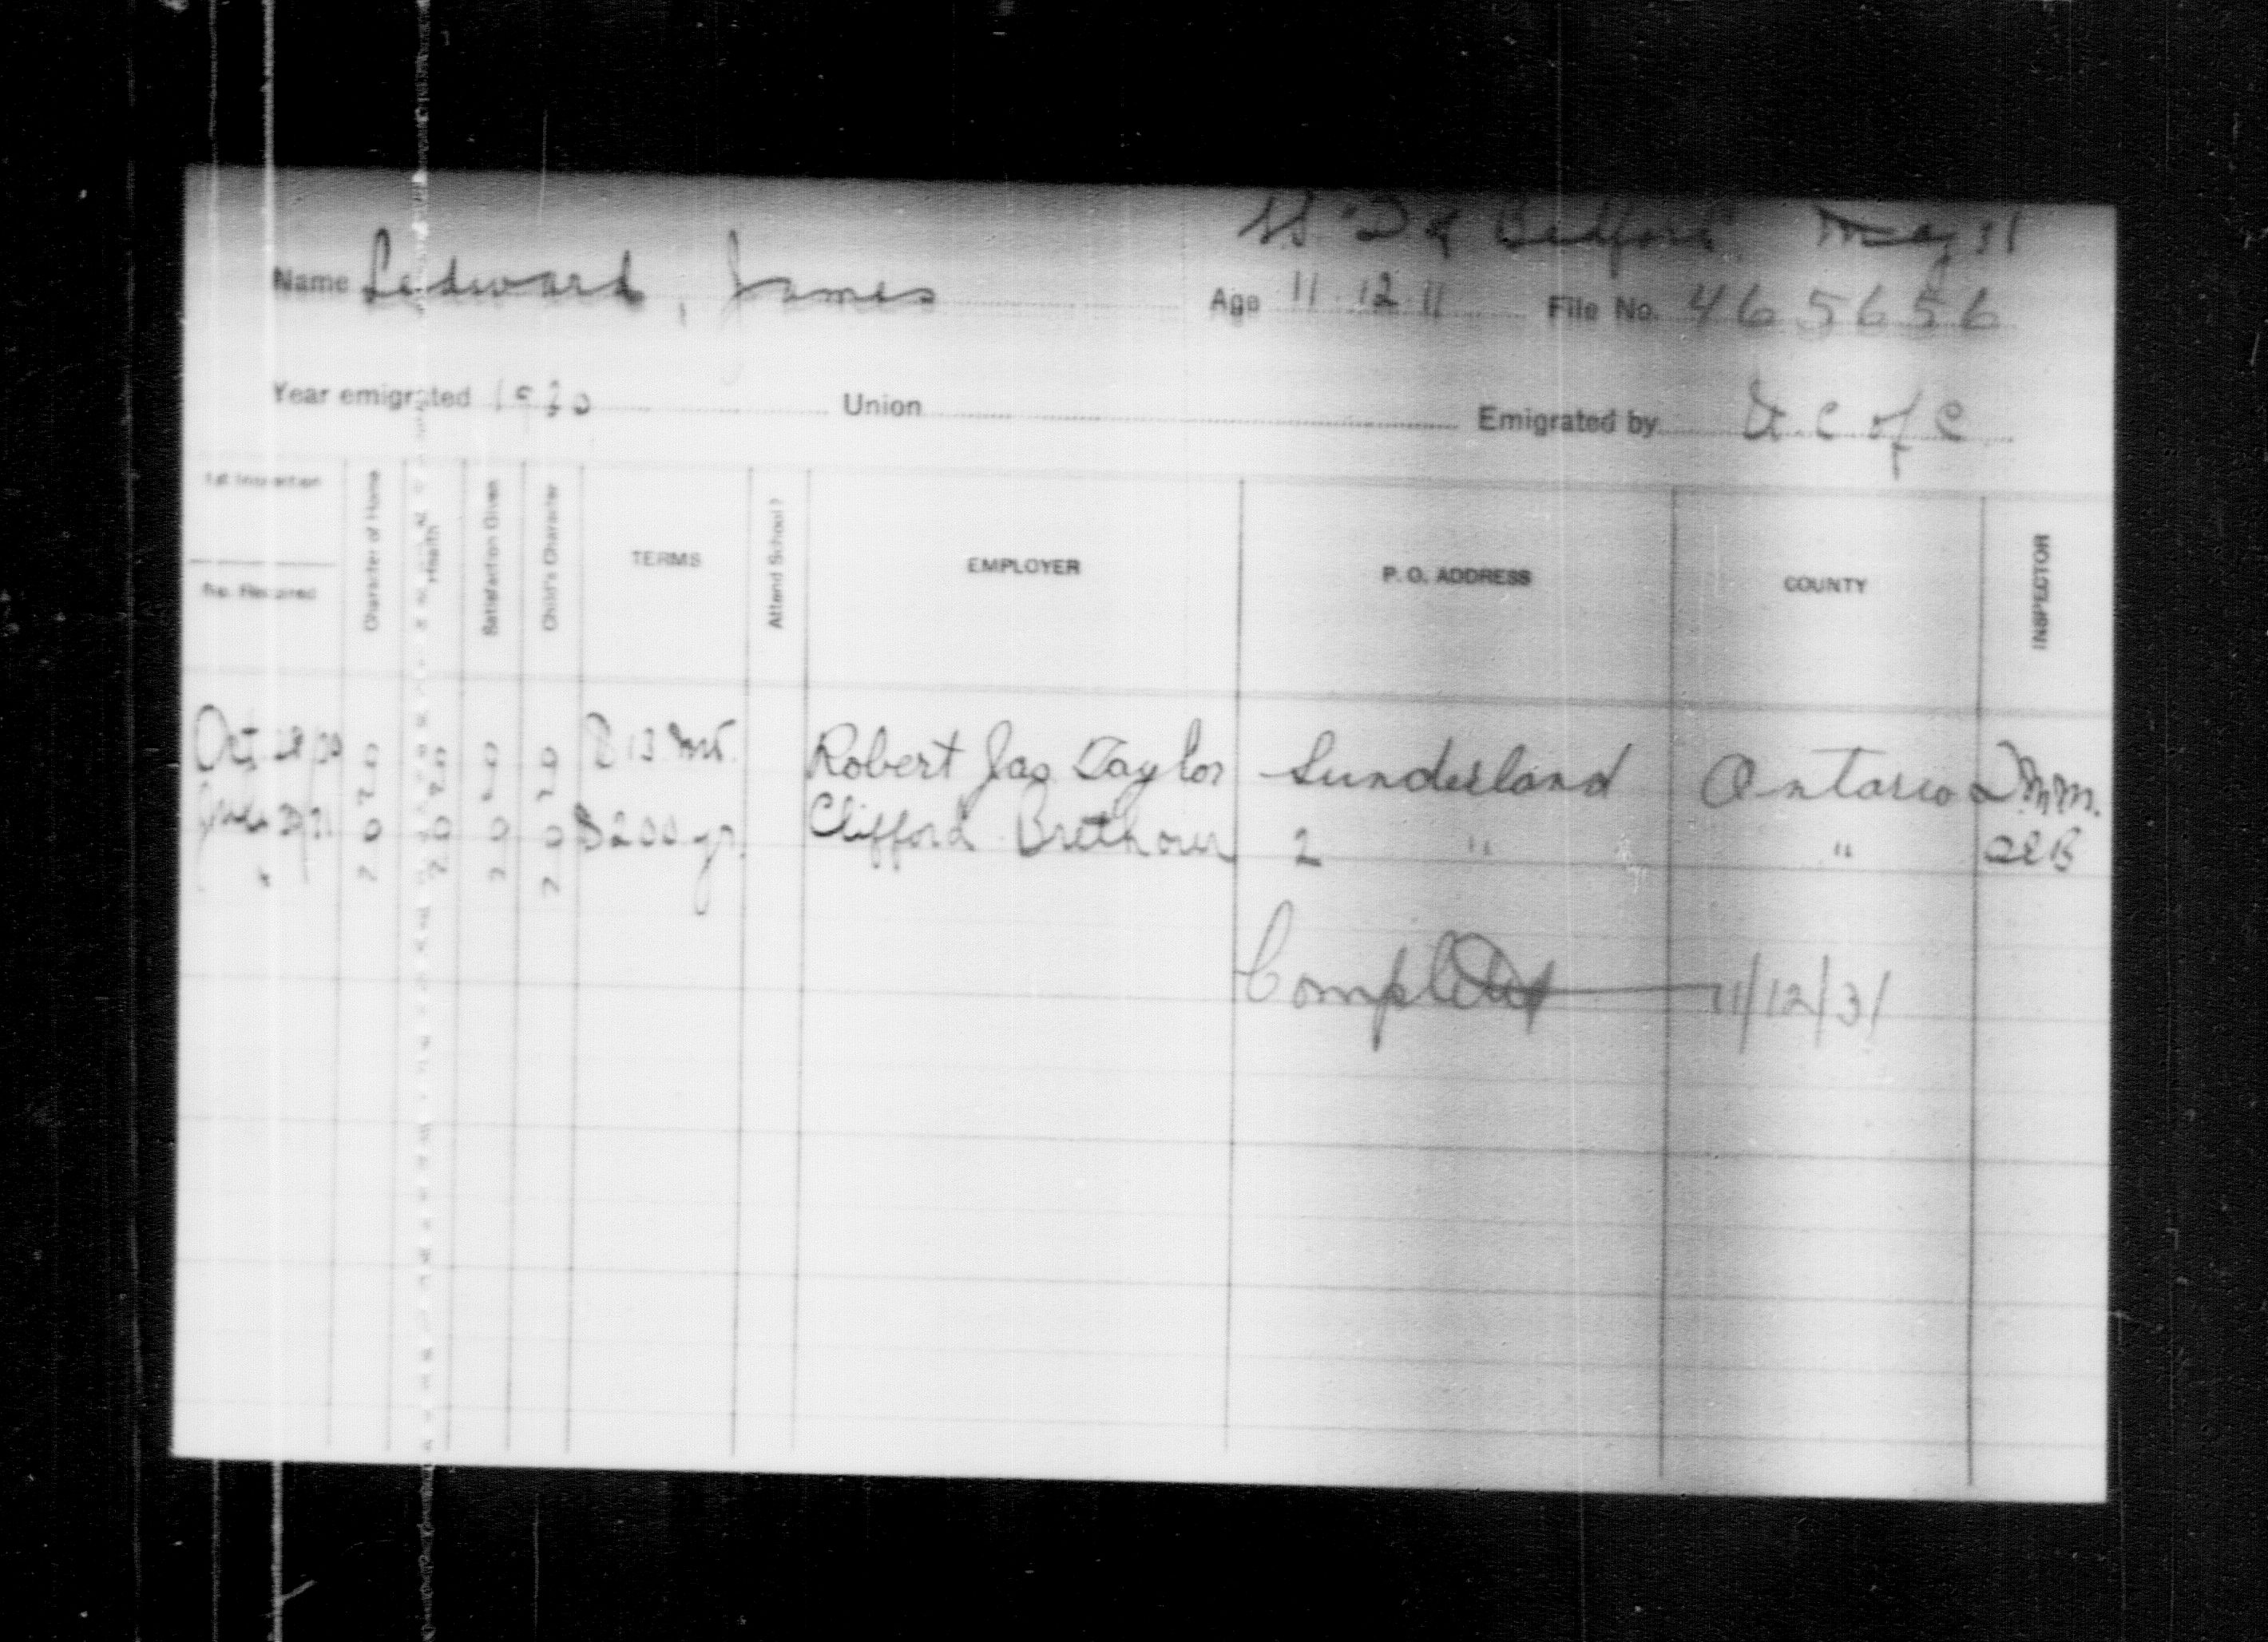 SS "D of Bedford" May 31
Name Ledward, James Age 11.12.11 File No. 465656
Year emigrated 1930 Union Emigrated by U.C of C
1st Inspection
No. Required
Character of Home
Health
Satisfaction Given
Child's Character
TERMS
Attend School?
EMPLOYER
P. O. ADDRESS
COUNTY
INSPECTOR
Oct 28/30 $13 mt. Robert Jas Taylor Sunderland Ontario
July 31 $200 yr. Clifford Brethour 2 " "
Completed 11/12/31